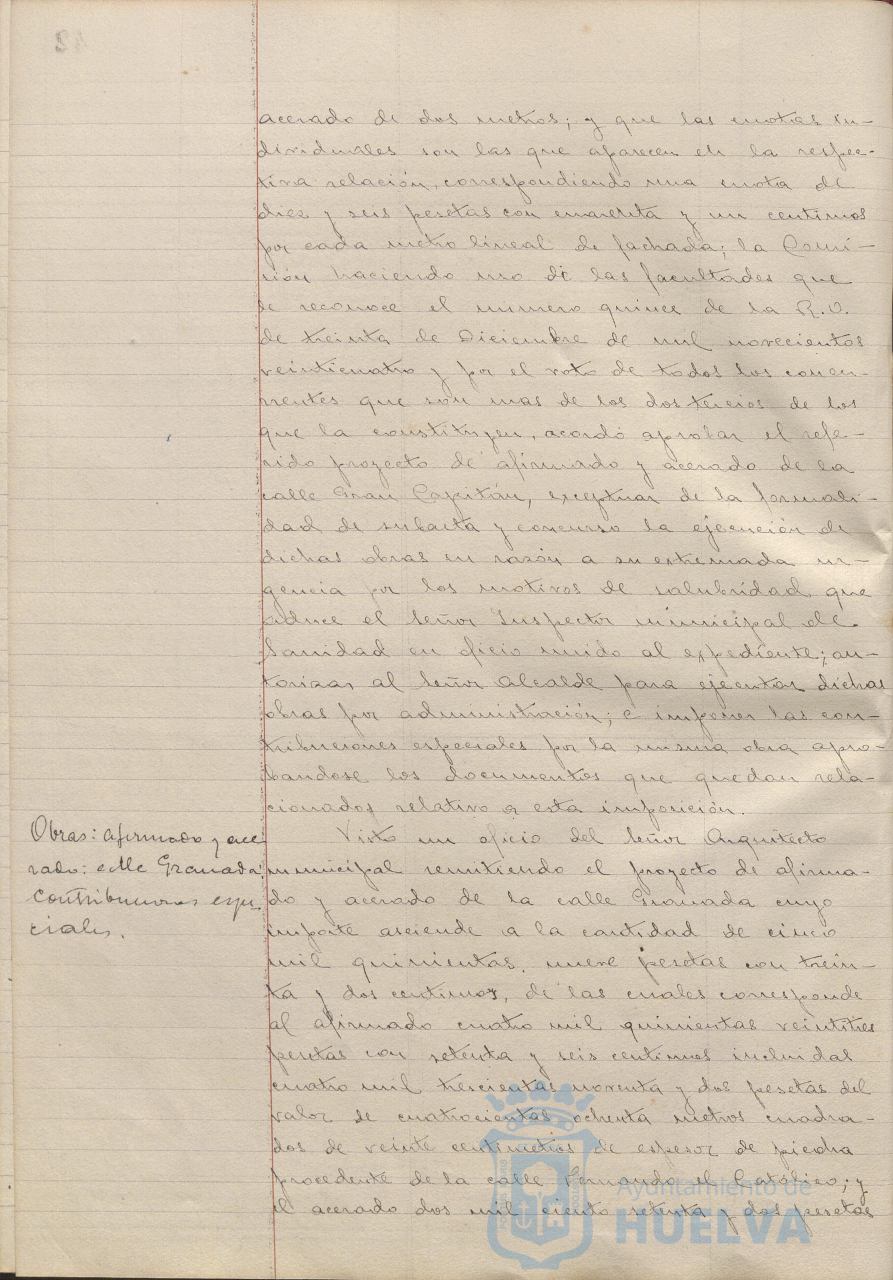 acerado de dos metros; y que las cuotas in-
dividuales son las que aparecen en la respec-
tiva relación, correspondiendo una cuota de
diez y seis pesetas con cuarenta y un centimos
por cada metro lineal de fachada; la Comi-
sión haciendo uso de las facultades que
le reconoce el número quince de la R.O.
de treinta de Diciembre de mil novecientos
veinticuatro y por el voto de todos los concu-
rrentes que son mas de los dos tercios de los
que la constituyen, acordó aprobar el refe-
rido proyecto de afirmado y acerado de la
calle Gran Capitán, exceptuar de la formali-
dad de subasta y concurso la ejecución de
dichas obras en razón a su extremada ur-
gencia por los motivos de salubridad que
aduce el Señor Inspector municipal de
Sanidad en oficio unido al expediente; au-
torizar al Señor Alcalde para ejecutar dichas
obras por administración; e imponer las con-
tribuciones especiales por la misma obra apro-
bandose los documentos que quedan rela-
cionados relativo a esta imposición.
Obras: afirmado y ace
rado: calle Granada:
contribuciones espe
ciales.
Visto un oficio del Señor Arquitecto
municipal remitiendo el proyecto de afirma-
do y acerado de la calle Granada cuyo
importe asciende a la cantidad de cinco
mil quinientas nueve pesetas con trein-
ta y dos centimos, de las cuales corresponde
al afirmado cuatro mil quinientas veintitres
pesetas con setenta y seis centimos incluidas
cuatro mil trescientas noventa y dos pesetas del
valor de cuatrocientas ochenta metros cuadra-
dos de veinte centimetros de espesor de piedra
procedente de la calle Fernando el Católico; y
el acerado dos mil ciento setenta y dos pesetas
Ayuntamiento de
HUELVA